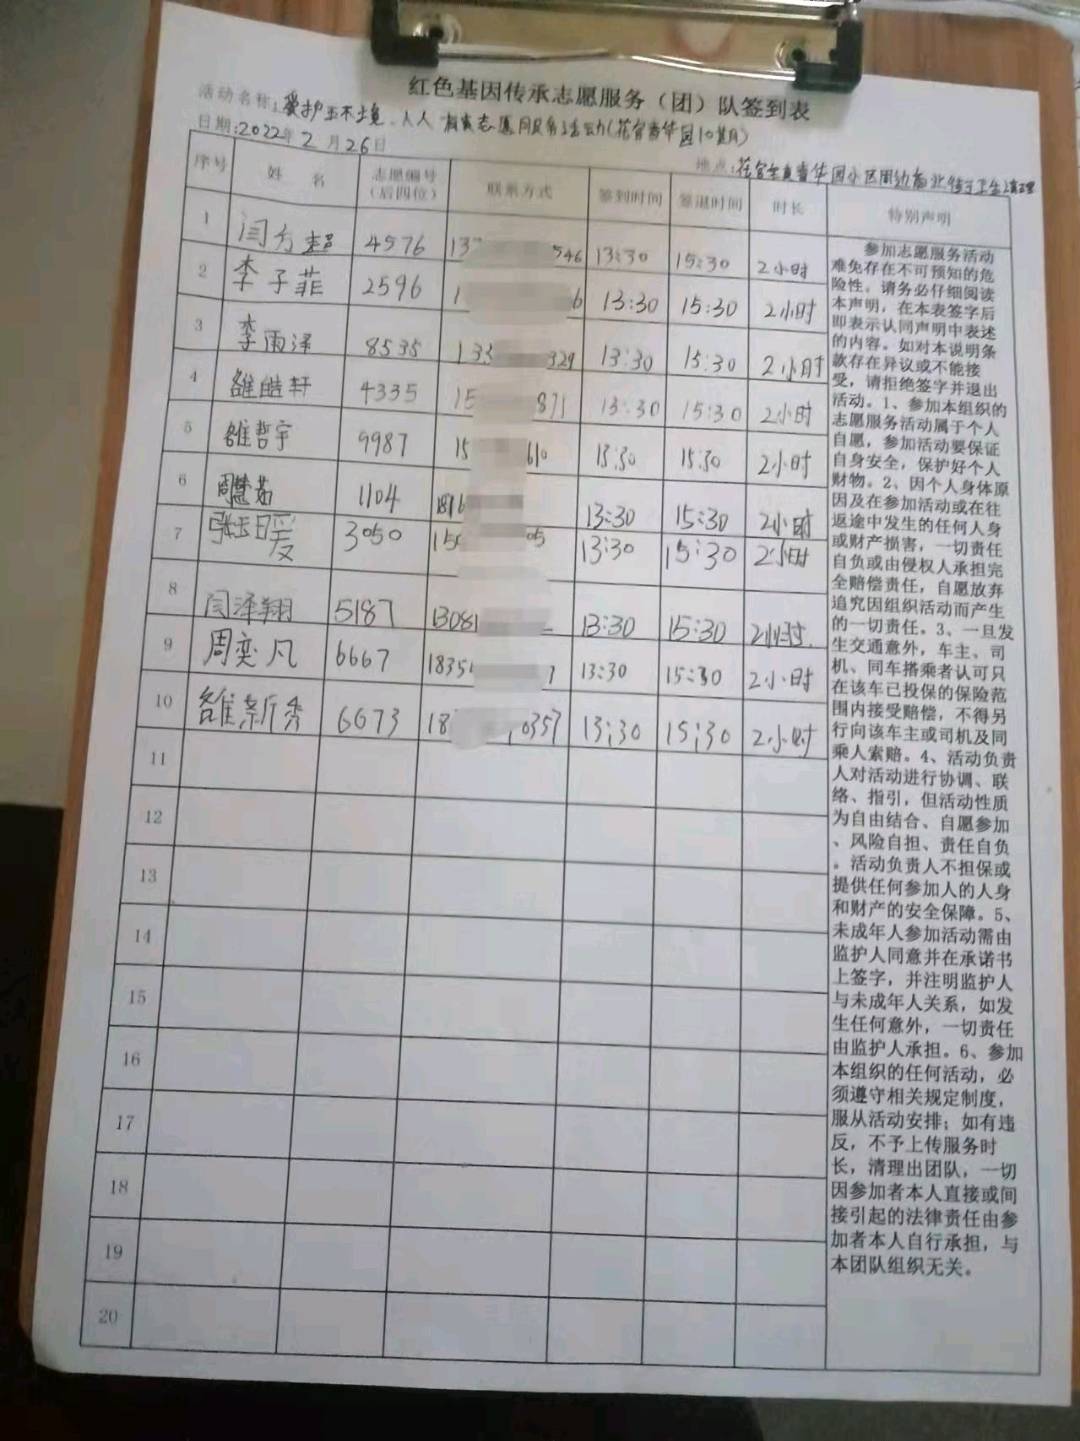 红色基因传承志愿服务（团）队签到表
活动名称：爱护环境、人人有责志愿服务活动（花官李华园10某月）
日期：2022年2月26日
地点：花官李华园小区周边商业街卫生清理
序号 姓 名 志愿编号（后四位） 联系方式 签到时间 签退时间 时长 特别声明
1 闫方超 4576 13 546 13:30 15:30 2小时
2 李子菲 2596 1 6 13:30 15:30 2小时
3 李雨泽 8535 133 329 13:30 15:30 2小时
4 皓轩 4335 15 871 13:30 15:30 2小时
5 哲宇 9987 15 610 13:30 15:30 2小时
6 周慧茹 1104 1816 13:30 15:30 2小时
7 张钰暖 3050 150 05 13:30 15:30 2小时
8 闫泽翔 5187 13081 13:30 15:30 2小时
9 周奕凡 6667 1835 7 13:30 15:30 2小时
10 新秀 6673 18 0357 13:30 15:30 2小时
11
12
13
14
15
16
17
18
19
20
参加志愿服务活动
难免存在不可预知的危
险性。请务必仔细阅读
本声明，在本表签字后
即表示认同声明中表述
的内容。如对本说明条
款存在异议或不能接
受，请拒绝签字并退出
活动。1、参加本组织的
志愿服务活动属于个人
自愿，参加活动要保证
自身安全，保护好个人
财物。2、因个人身体原
因及在参加活动或在往
返途中发生的任何人身
或财产损害，一切责任
自负或由侵权人承担完
全赔偿责任，自愿放弃
追究因组织活动而产生
的一切责任。3、一旦发
生交通意外，车主、司
机、同车搭乘者认可只
在该车已投保的保险范
围内接受赔偿，不得另
行向该车主或司机及同
乘人索赔。4、活动负责
人对活动进行协调、联
络、指引，但活动性质
为自由结合、自愿参加
、风险自担、责任自负
。活动负责人不担保或
提供任何参加人的人身
和财产的安全保障。5、
未成年人参加活动需由
监护人同意并在承诺书
上签字，并注明监护人
与未成年人关系，如发
生任何意外，一切责任
由监护人承担。6、参加
本组织的任何活动，必
须遵守相关规定制度，
服从活动安排；如有违
反，不予上传服务时
长，清理出团队，一切
因参加者本人直接或间
接引起的法律责任由参
加者本人自行承担，与
本团队组织无关。